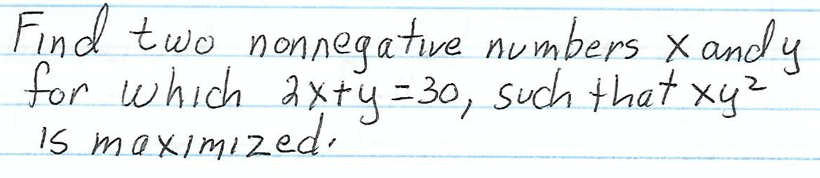 Find two nonnegative numbers x and y
for which 2x+y=30, such that xy²
is maximized.